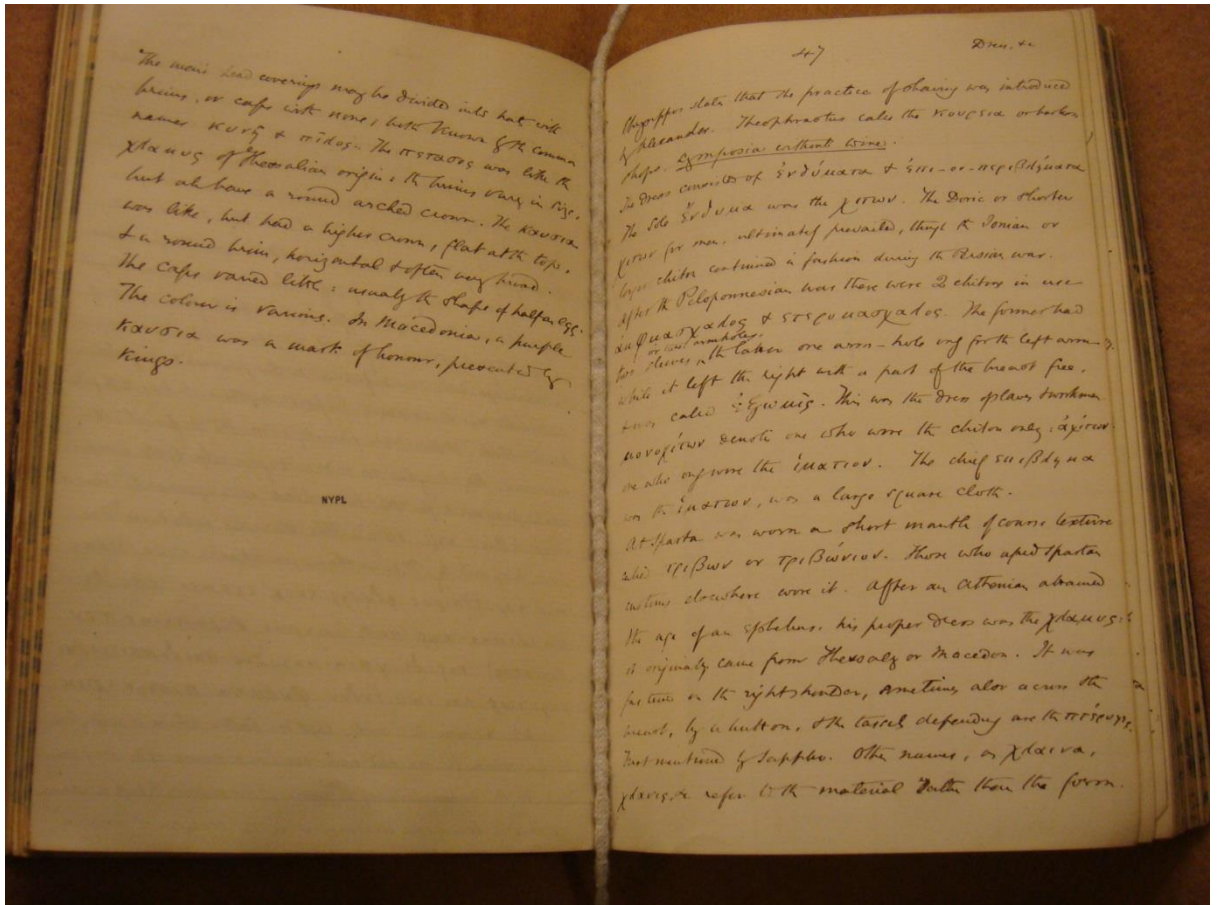 The men's head coverings may be divided into hats with
brims, or caps with none, both known by the common
names κυνῆ & πῖλος. The πετασος was like the
χλαμυς of Thessalian origin: the brims vary in size,
but all have a round arched crown. The καυσια
was like, but had a higher crown, flat at the top,
& a round brim, horizontal & often very broad.
The caps varied little: usually the shape of half an egg.
The colour is various. In Macedonia, a purple
καυσια was a mark of honour, presented by
Kings.
NYPL
47 Dress, &c
Chrysippus states that the practice of shaving was introduced
by Alexander. Theophrastus calls the κουρεια or barbers
shops. Symposia without wine.
The Dress consisted of ἐνδύματα & ἐπι-or-περιβλήματα
The sole ἔνδυμα was the χιτων. The Doric or shorter
χιτων for men, ultimately prevailed, though the Ionian or
longer chiton continued in fashion during the Persian war.
After the Peloponnesian war there were 2 chitons in use
ἀμφιμασχαλος & ετερομασχαλος. The former had
two sleeves, or two armholes, the latter one arm-hole only for the left arm
while it left the right with a part of the breast free,
& was called ἐξωμίς. This was the dress of slaves & workmen
μονοχίτων denotes one who wore the chiton only: ἀχίτων
one who only wore the ἱματιον. The chief επιβλημα
was the ἱματιον, was a large square cloth.
At Sparta was worn a short mantle of coarse texture
called τριβων or τριβώνιον. Those who aped Spartan
customs elsewhere wore it. After an Athenian attained
the age of an ephebus, his proper dress was the χλαμυς:
it originally came from Thessaly or Macedon. It was
fastened on the right shoulder, sometimes also across the
breast, by a button, & the tassels depending are the πτέρυγες.
First mentioned by Sappho. Other names, as χλαινα,
χλανις, &c refer to the material rather than the form.